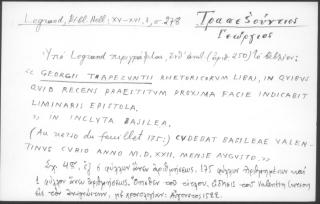 Legrand, Bibl. Hell. XV-XVI, 3, σ 278
Τραπεζούντιος
Γεώργιος
Ὑπὸ Legrand περιγράφεται, ὑπ' ἀριθ. (ἀριθ. 250) τὸ βιβλίον:
« GEORGII TRAPEZUNTII RHETORICORUM LIBRI, IN QUIBUS
QUID RECENS PRAESTITUM PROXIMA FACIE INDICABIT
LIMINARIS EPISTOLA.
» IN INCLYTA BASILEA.
(Au verso du feuillet 175:) CUDEBAT BASILEAE VALEN-
TINUS CURIO ANNO M.D.XXII, MENSE AUGUSTO.»
Σχ. 4º, 6 φύλλων ἄνευ ἀριθμήσεως, 175 φύλλων ἠριθμημένων καὶ
1 φύλλου ἄνευ ἀριθμήσεως. Valentin Curion